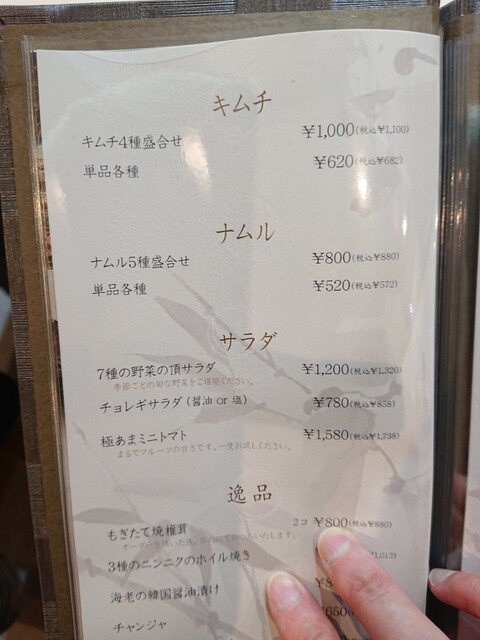 キムチ
キムチ4種盛合せ ¥1,000(税込¥1,100)
単品各種 ¥620(税込¥682)
ナムル
ナムル5種盛合せ ¥800(税込¥880)
単品各種 ¥520(税込¥572)
サラダ
7種の野菜の頂サラダ ¥1,200(税込¥1,320)
季節ごとの旬な野菜をご堪能ください。
チョレギサラダ(醤油 or 塩) ¥780(税込¥858)
極あまミニトマト ¥1,580(税込¥1,738)
まるでフルーツの甘さです。一度お試しください。
逸品
もぎたて焼椎茸 2コ ¥800(税込¥880)
3種のニンニクのホイル焼き 1,012)
海老の韓国醤油漬け ¥8
チャンジャ ¥650